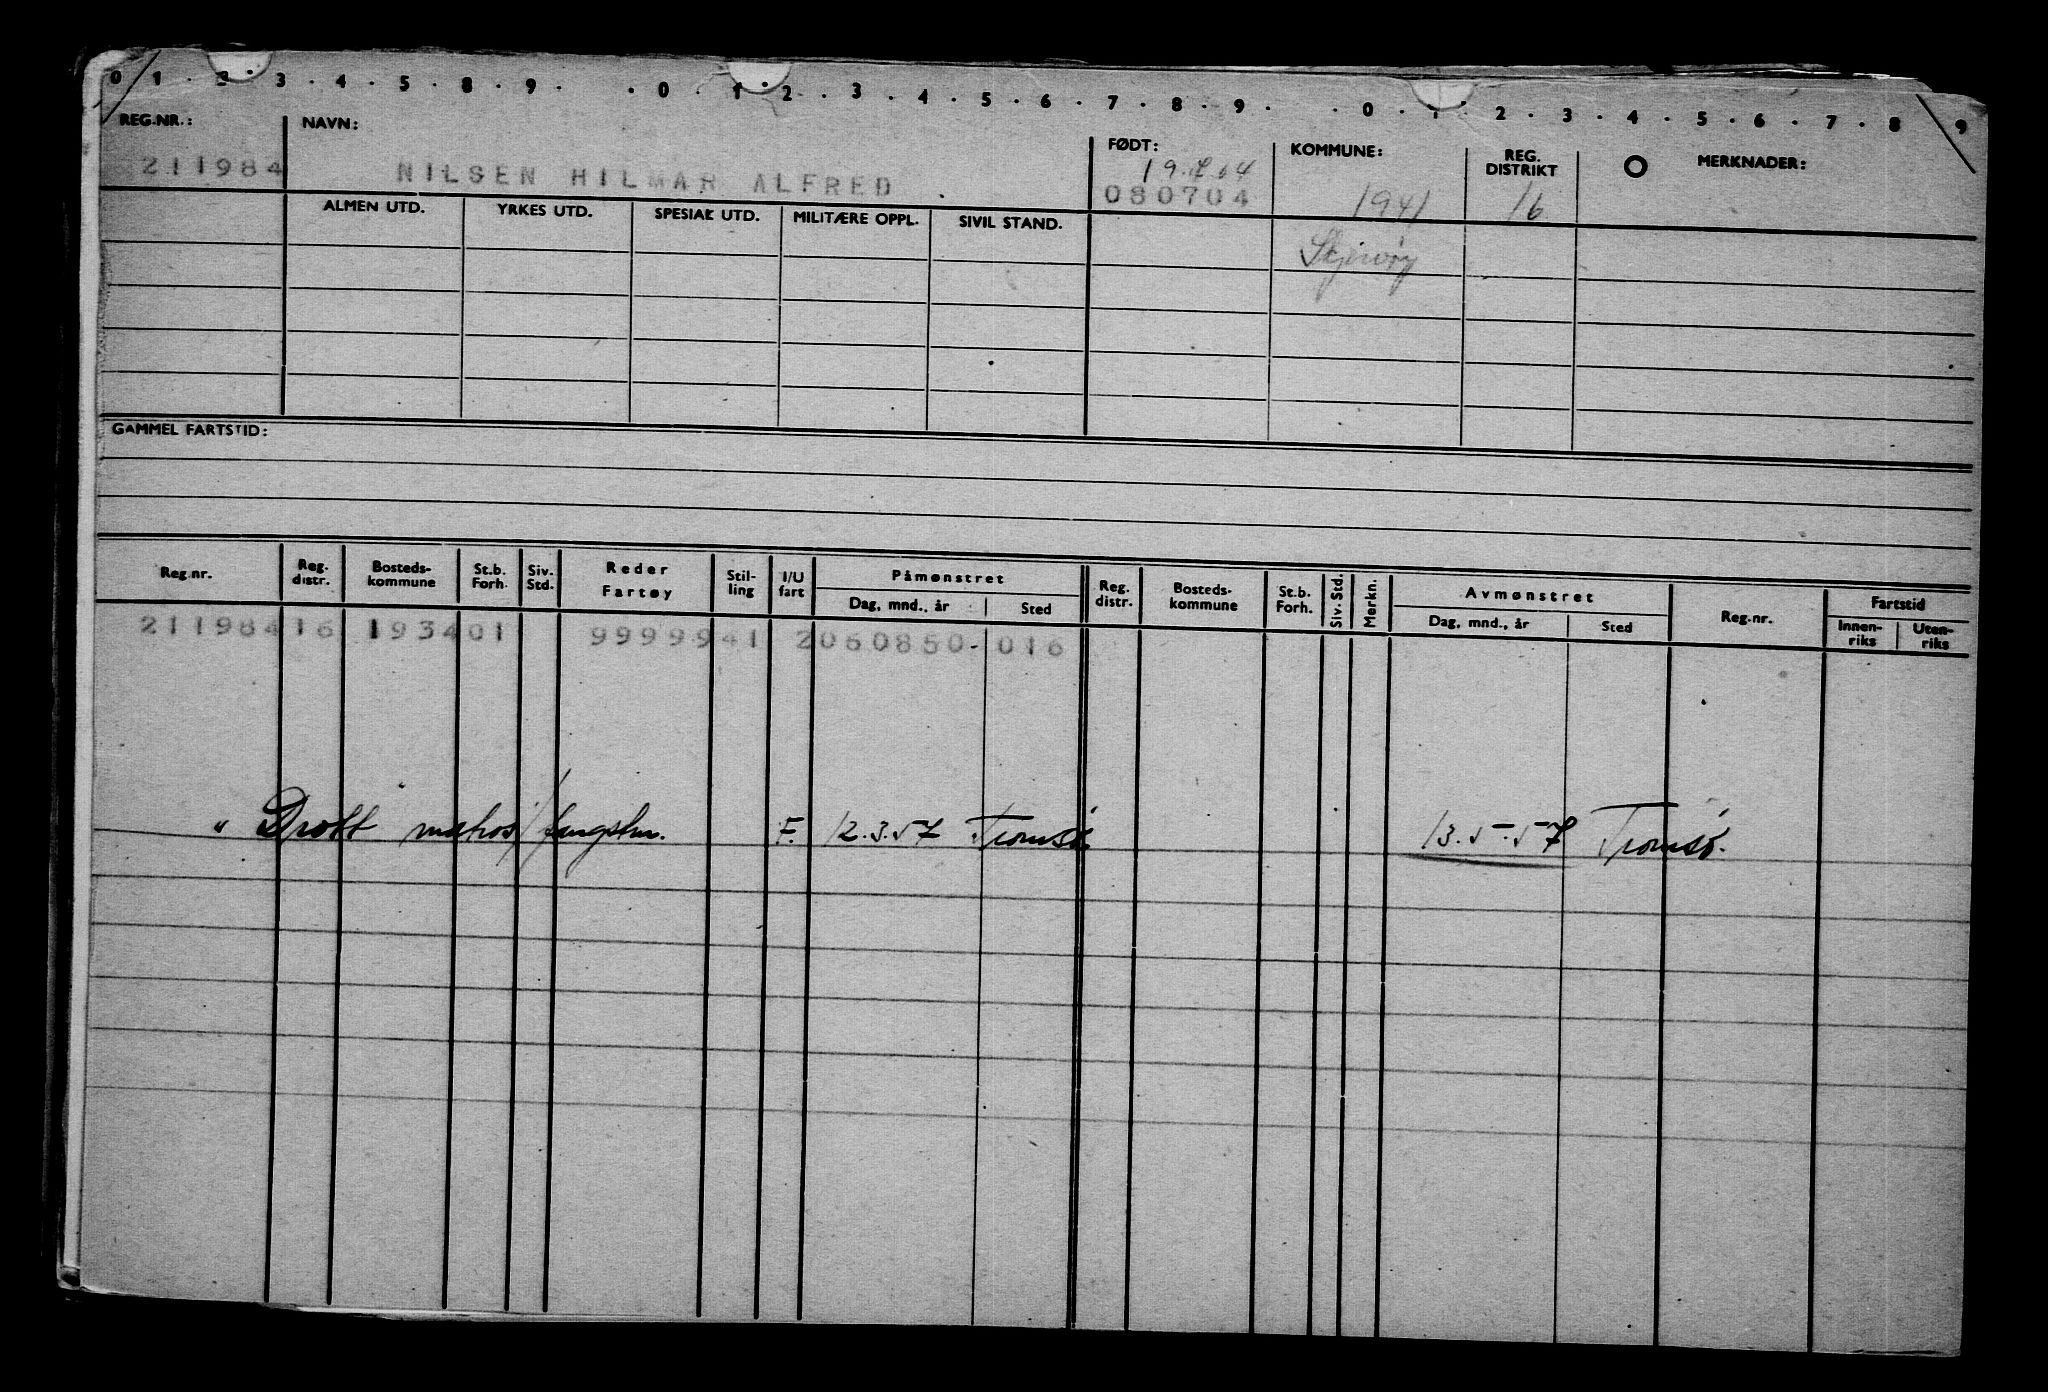 0 1 . 2 . 3 . 4 . 5 . 8 . 9 . . 0 . 1 . 2 . 3 . 4 . 5 . 6 . 7 . 8 . 9 . . 0 . 1 . 2 . 3 . 4 . 5 . 6 . 7 . 8 . 9
REG.NR.: NAVN: FØDT: KOMMUNE: REG. DISTRIKT MERKNADER:
211984 NILSEN HILMAR ALFRED 080704 1941 16
ALMEN UTD. YRKES UTD. SPESIAL UTD. MILITÆRE OPPL. SIVIL STAND.
Skjervøy
GAMMEL FARTSTID:
Reg.nr. Reg. distr. Bosteds- kommune St.b. Forh. Siv. Std. Reder Fartøy Stil- ling I/U fart Påmønstret Dag, mnd., år Sted Reg. distr. Bosteds- kommune St.b. Forh. Siv. Std. Merkn. Avmønstret Dag, mnd., år Sted Reg.nr. Fartstid Innen- riks Uten- riks
211984 16 1934 01 99999 41 2 060850. 016
" Drott matros/fangstm. F. 12.3.57 Tromsø. 13.5-57 Tromsø.